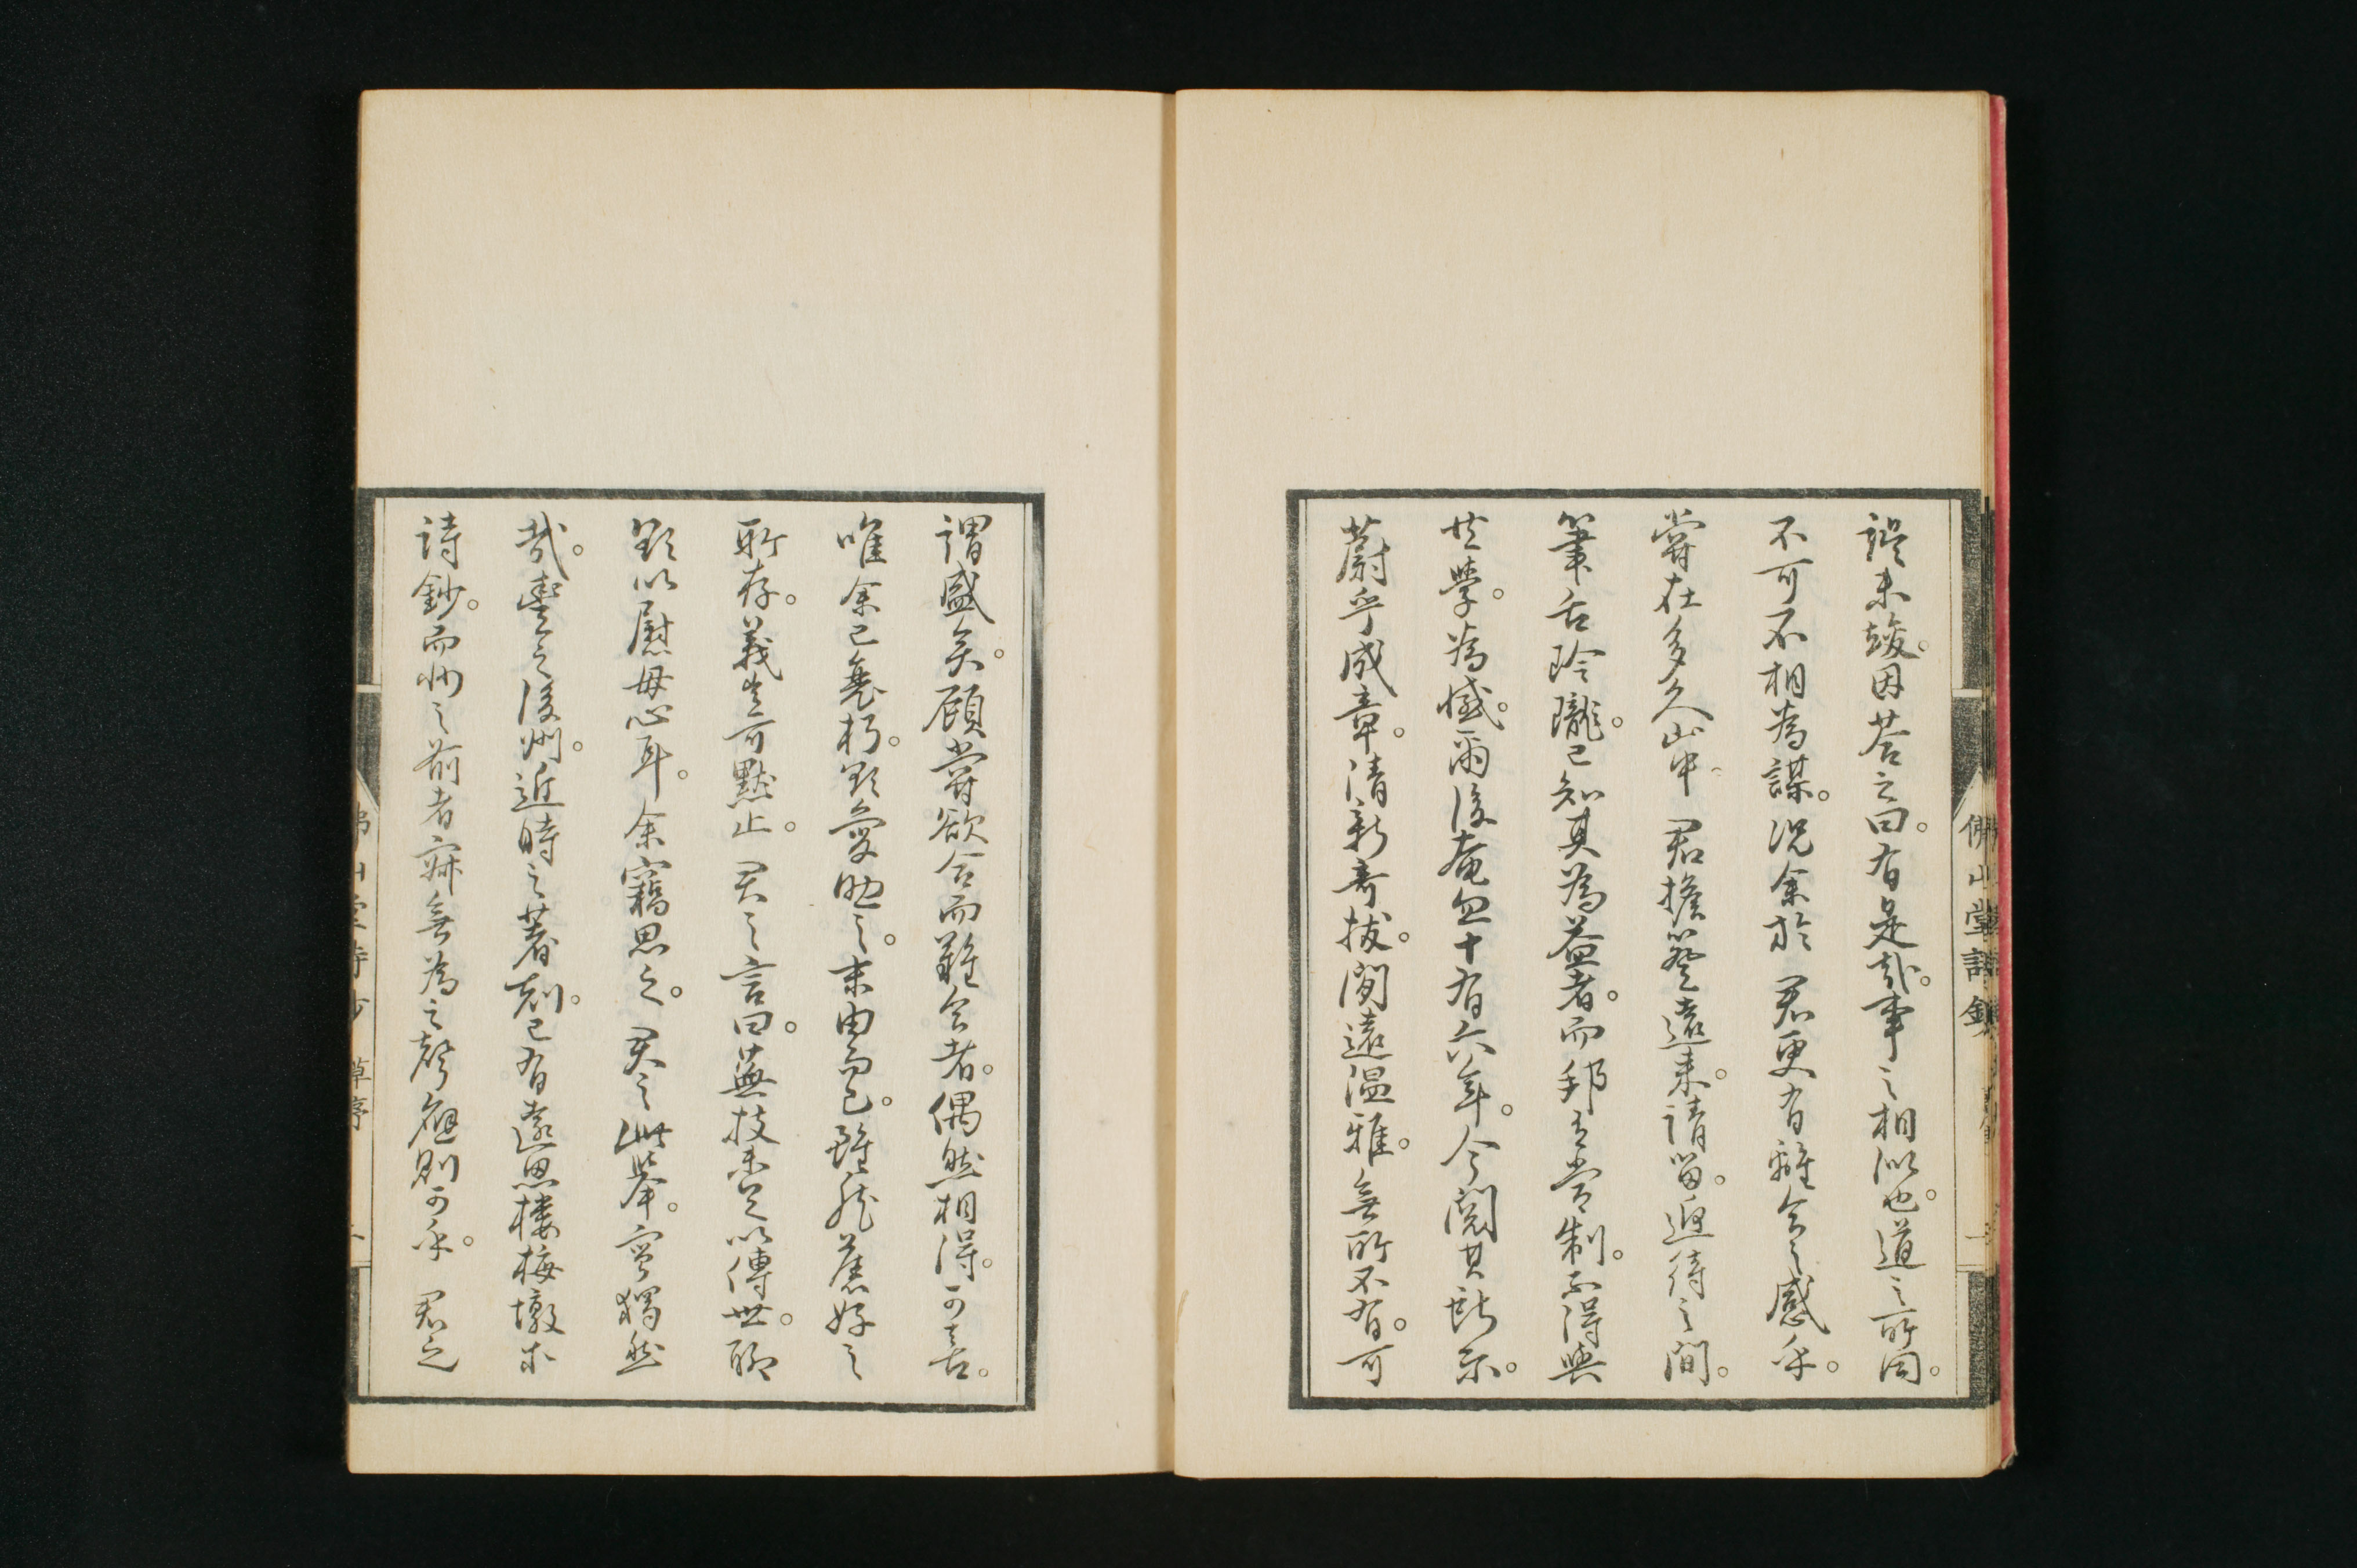 諾未竣。因荅之曰。有是哉。事之相似也。道之所因。
不可不相為謀。況余於 君更有離合之感乎。
嘗在多久山中。 君擔簦遠来。請留。逓待之間。
筆舌玲瓏。已知其為益者。而邦有常制。不得與
共學。為憾。爾後奄忽十有六年。今閲其所示。
蔚乎成章。清新奇拔。閑遠温雅。無所不有。可
謂盛矣。顧嘗欲合而難合者。偶然相得。可喜。
唯余已老朽。雖愛助之。末由而已。雖然舊好之
所存。義豈可黙止。 君之言曰。蕪技未足以傳世。聊
欲以慰母心耳。余竊思之。 君之此擧。寧獨然
哉。豊之後洲。近時之著刻。已有遠思樓梅墩
詩鈔。而州之前者寂無為之聲應則可乎。 君之
佛山堂詩鈔
佛山堂詩鈔 草序